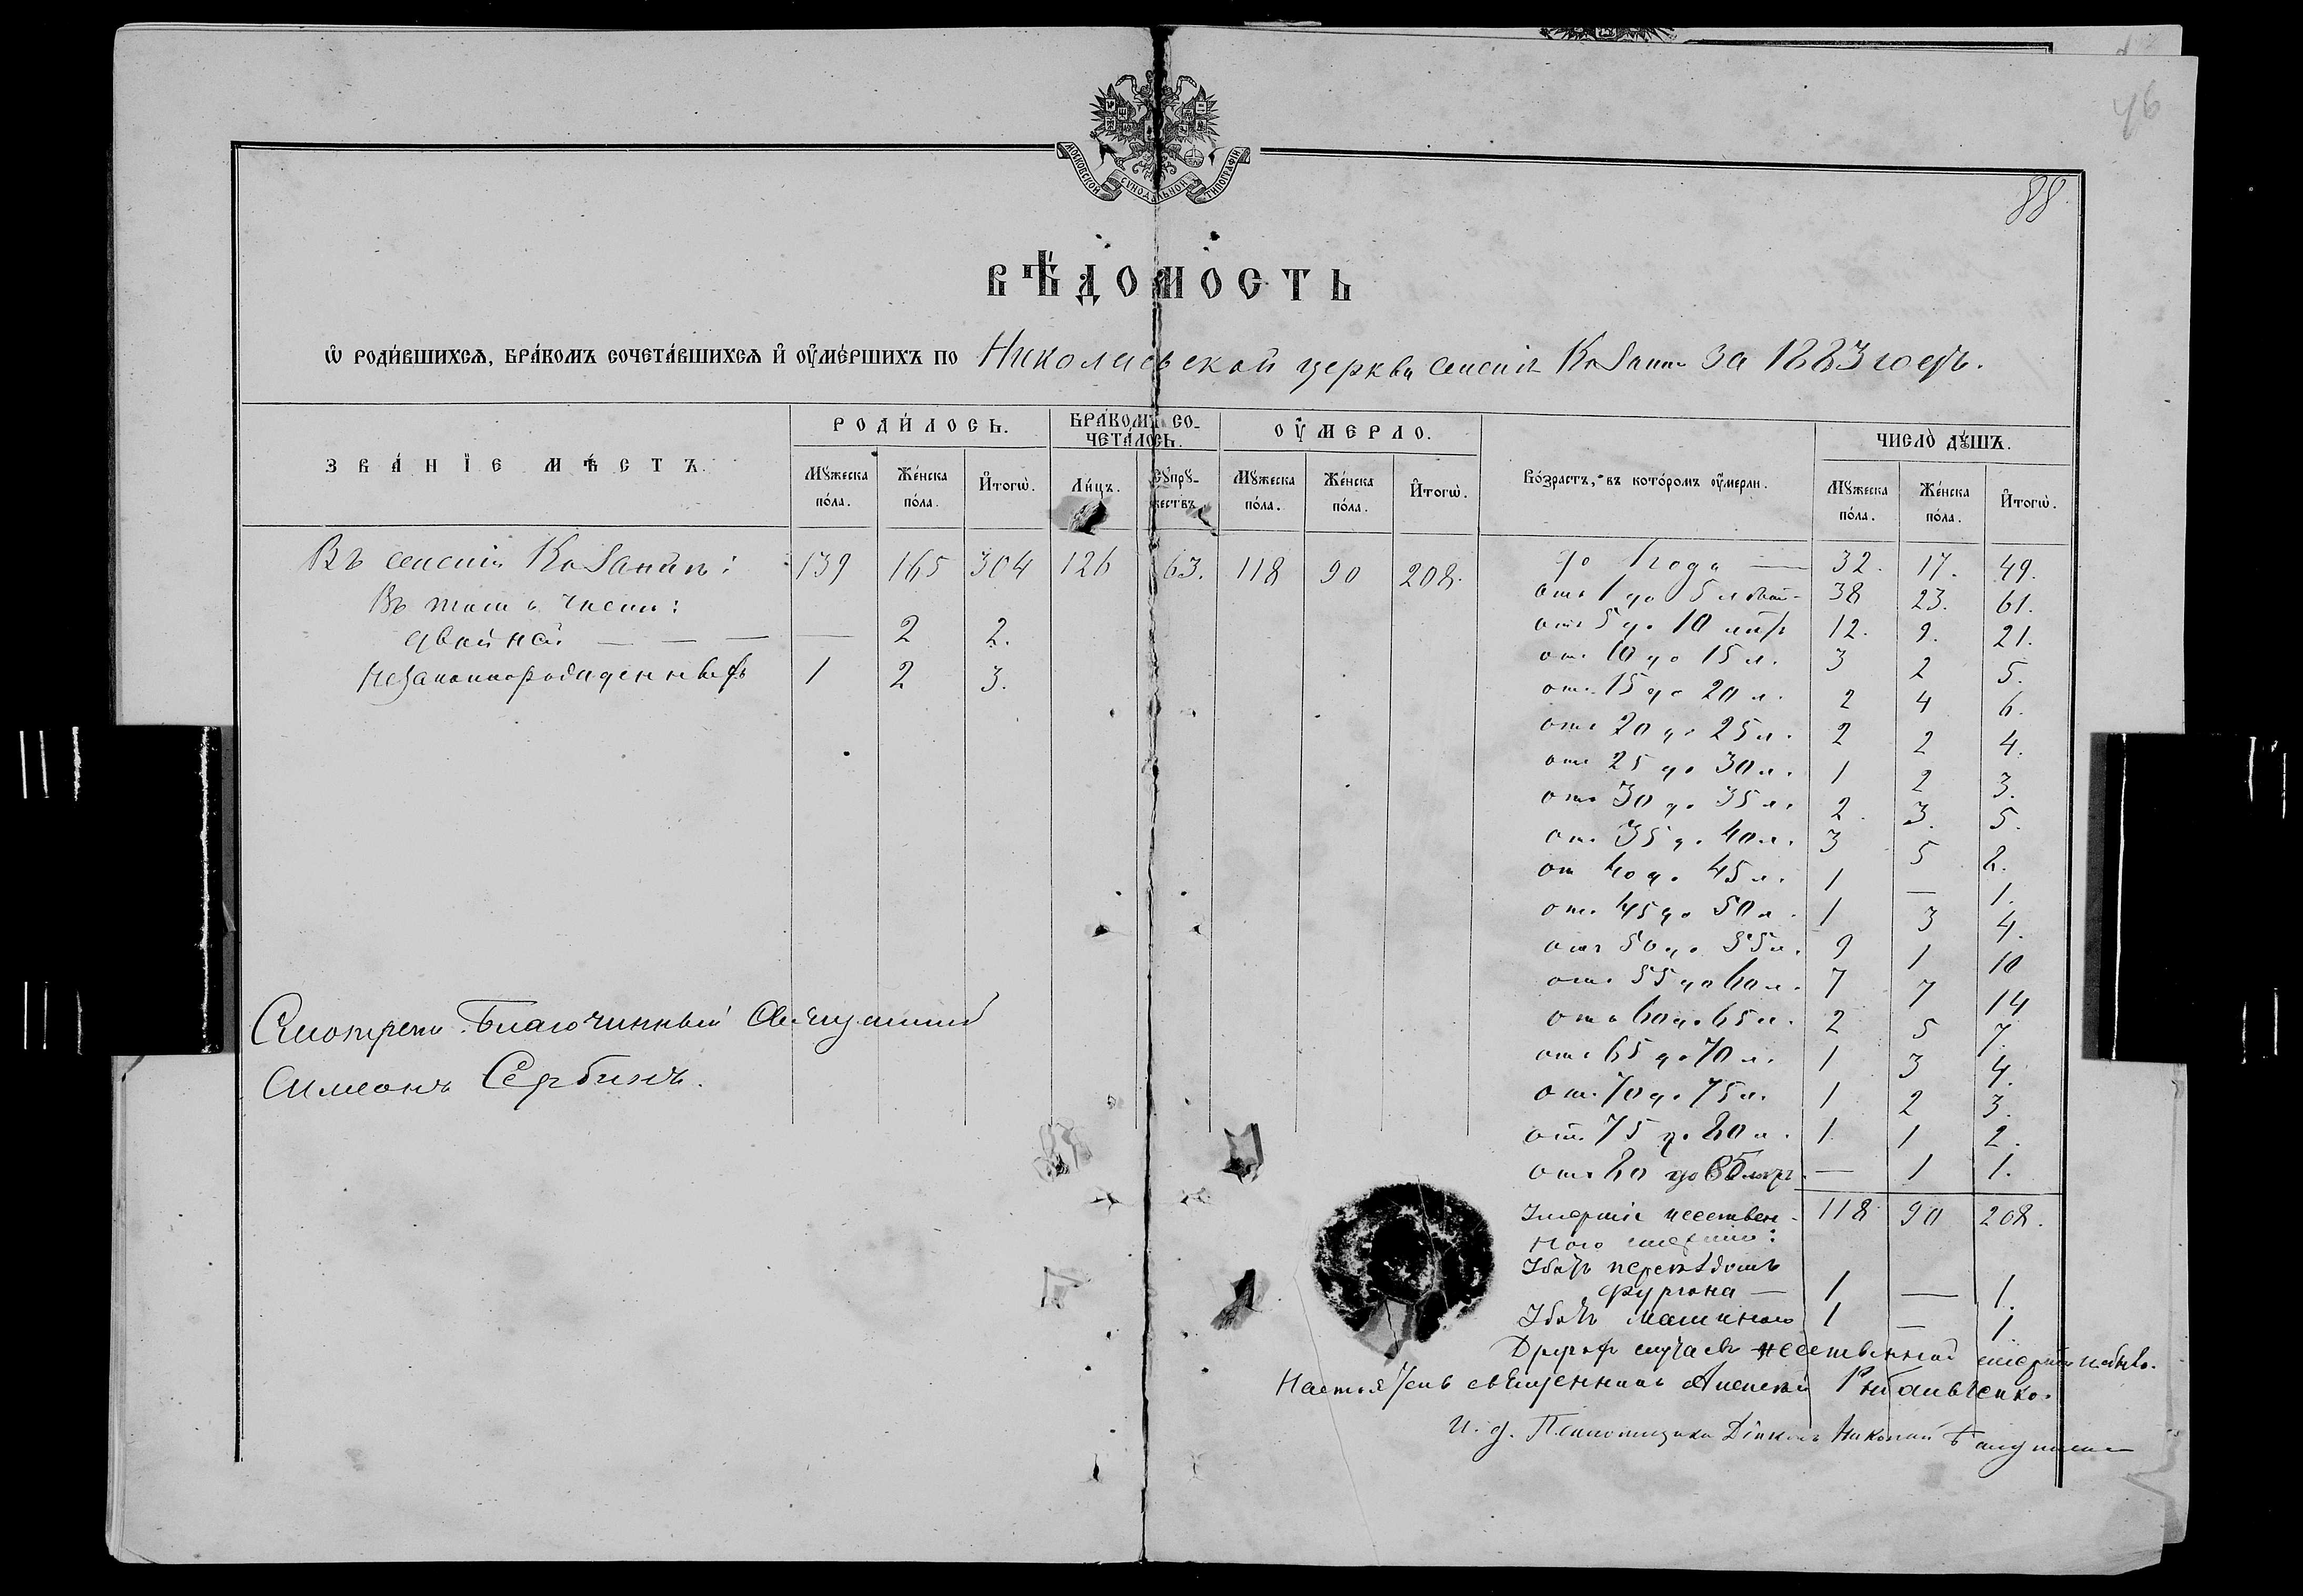 46
88
МОСКОВСКОЙ СУНОДАЛЬНОЙ ТИПОГРАФІИ
ВѢДОМОСТЬ
Ѡ РОДИВШИХСѦ, БРАКОМЪ СОЧЕТАВШИХСѦ И ОУМЕРШИХЪ ПО Николаевской церкви селенія за 1883 годъ.
ЗВАНІЕ МѢСТЪ. РОДИЛОСЬ. БРАКОМЪ СО-ЧЕТАЛОСЬ. ОУМЕРЛО. Возрастъ, въ которомъ оумерли. ЧИСЛО ДꙊШЪ.
Мꙋжеска пола. Женска пола. Итогѡ. Лицъ. Сꙋпрꙋ-жествъ. Мꙋжеска пола. Женска пола. Итогѡ. Мꙋжеска пола. Женска пола. Итогѡ.
Въ селеніи 139 165 304 126 63. 118 90 208. до 1 года — 32. 17. 49.
Въ томъ числѣ: отъ 1 до 5 лѣтъ 38 23. 61.
двойни — — — — 2 2. отъ 5 до 10 лѣтъ 12. 9. 21.
Незаконнорожденныхъ 1 2 3. от 10 до 15 л. 3 2 5.
от 15 до 20 л. 2 4 6.
отъ 20 до 25 л. 2 2 4.
отъ 25 до 30 л. 1 2 3.
отъ 30 до 35 л. 2. 3. 5.
от 35 до 40 л. 3 5 8.
от 40 до 45 л. 1 — 1.
от 45 до 50 л. 1 3 4.
отъ 50 до 55 л. 9 1 10
отъ 55 до 60 л. 7 7 14
отъ 60 до 65 л. 2 5 7.
отъ 65 до 70 л. 1 3 4.
от 70 до 75 л. 1 2 3.
от 75 до 80 л. 1 1 2.
отъ 80 до 85 лѣтъ — 1 1.
118 90 208.
ного смертію:
Убитъ
фургона — 1 — 1.
Убитъ 1 — 1
Смотрѣлъ Благочинный Священникъ
Симеонъ Сербиновъ.
Другихъ случаевъ смерти небыло.
Настоятель священникъ Алексѣй
И. д. Псаломщика Діаконъ Николай